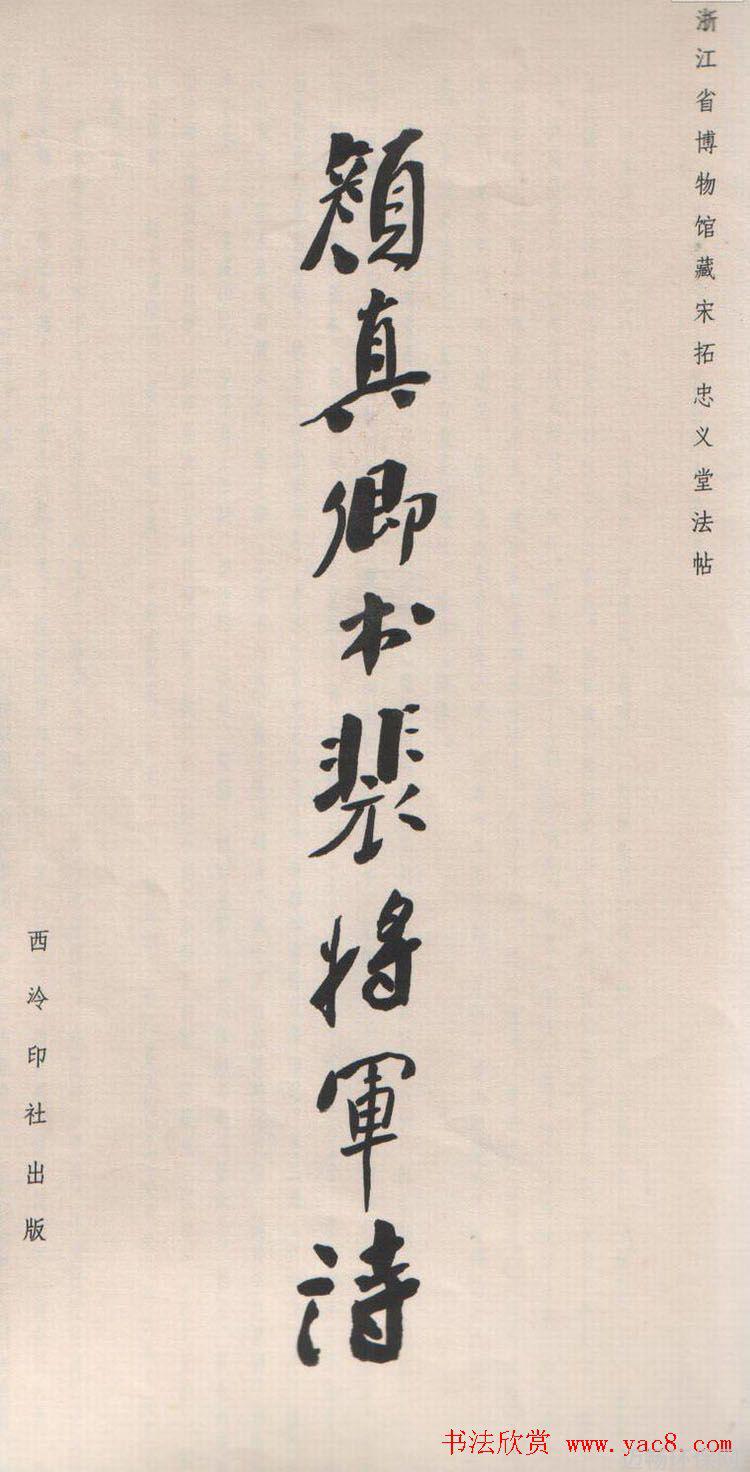 浙江省博物馆藏宋拓忠义堂法帖
顔真卿书裴将軍詩
西泠印社出版
书法欣赏 www.yac8.com